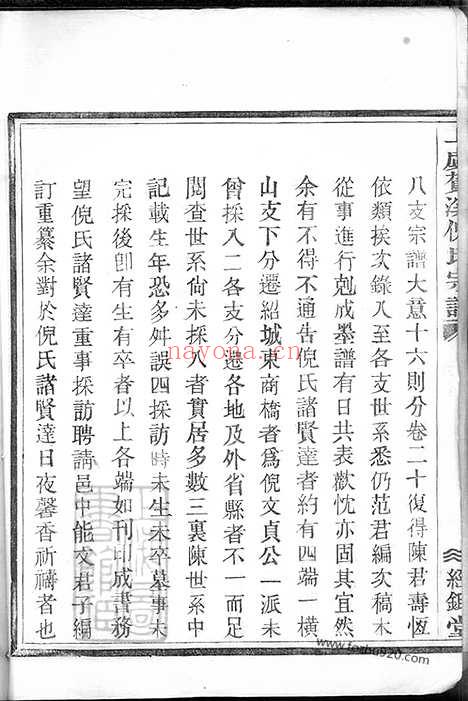 虞賀溪倪氏宗譜
經鋤堂
八支宗譜大意十六則分卷二十復得陳君壽恆
依類挨次錄入至各支世系悉仍范君編次稿本
從事進行剋成墨譜有日共表歡忱亦固其宜然
余有不得不通告倪氏諸賢達者約有四端一橫
山支下分遷紹城東商橋者為倪文貞公一派未
曾採入二各支分遷各地及外省縣者不一而足
閱查世系尚未採入者實居多數三裏陳世系中
記載生年恐多舛誤四採訪時未生未卒墓事未
完採後卽有生有卒者以上各端如刊印成書務
望倪氏諸賢達重事採訪聘請邑中能文君子編
訂重纂余對於倪氏諸賢達日夜馨香祈禱者也
nayona.cn
www.tozhu920.com